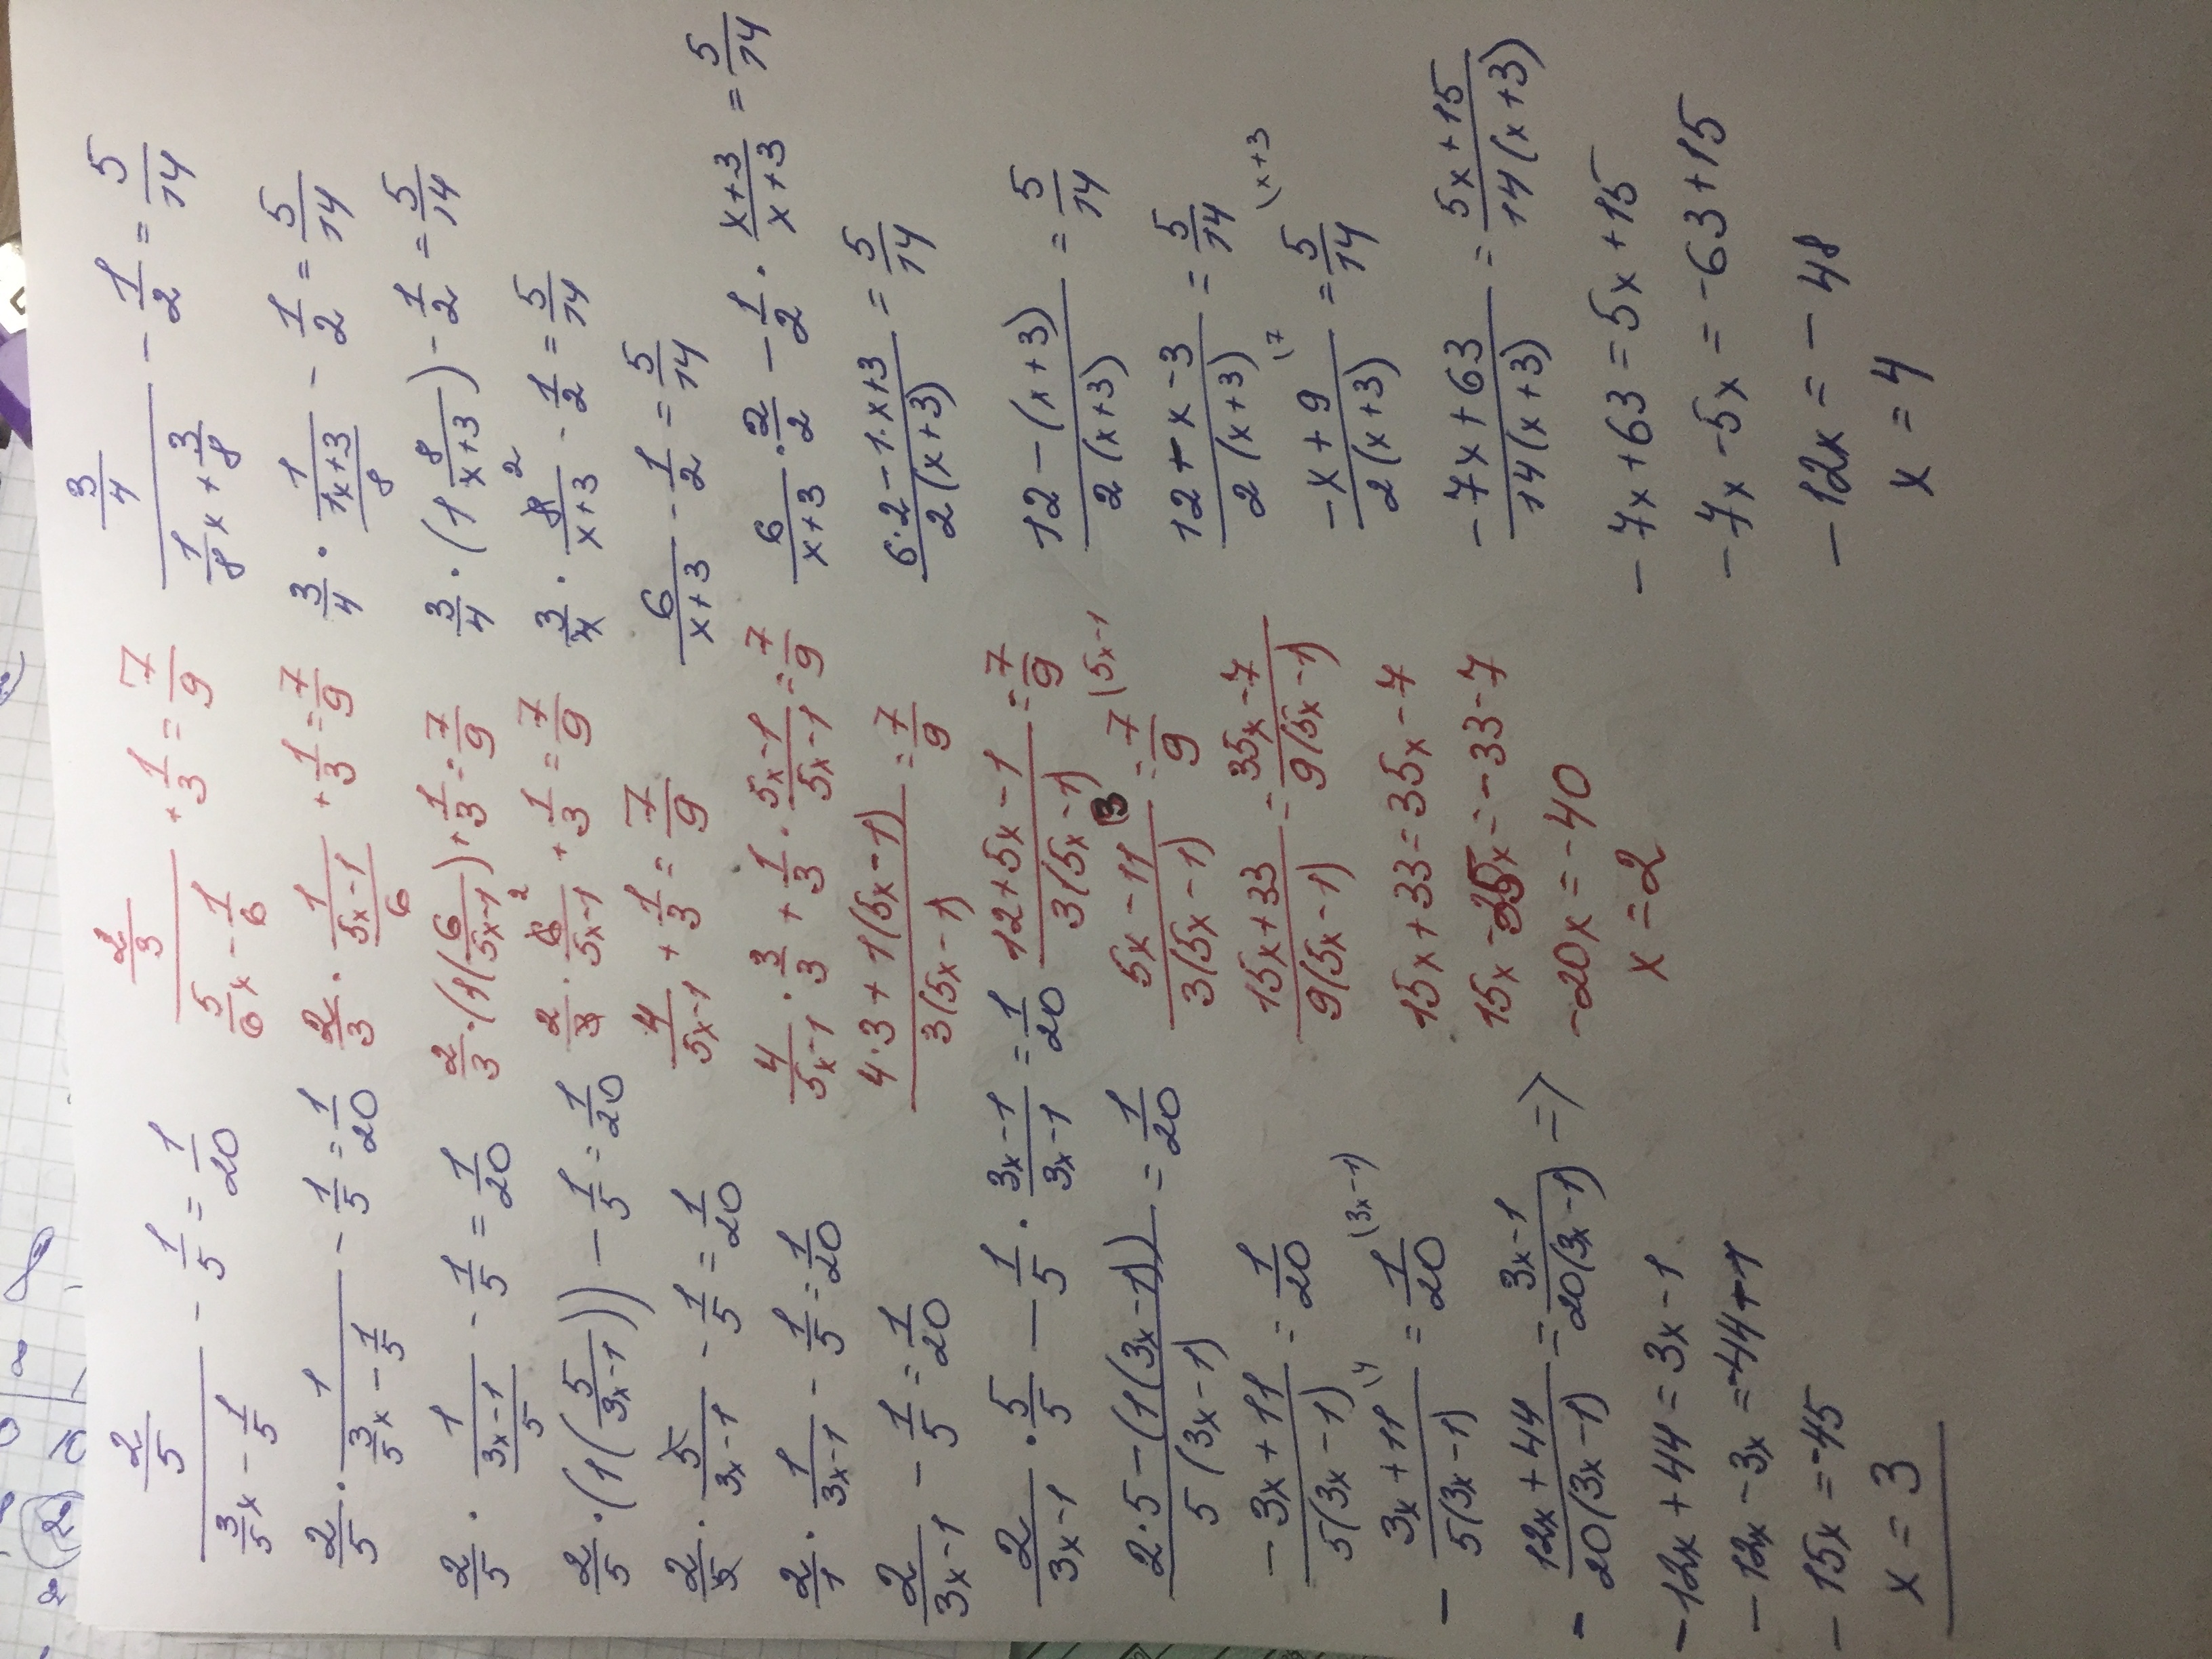 2/5 / (3/5 x - 1/5) - 1/5 = 1/20
2/5 · 1/(3/5 x - 1/5) - 1/5 = 1/20
2/5 · 1/((3x-1)/5) - 1/5 = 1/20
2/5 · (1(5/(3x-1))) - 1/5 = 1/20
2/5 · 5/(3x-1) - 1/5 = 1/20
2/1 · 1/(3x-1) - 1/5 = 1/20
2/(3x-1) - 1/5 = 1/20
2/(3x-1) · 5/5 - 1/5 · (3x-1)/(3x-1) = 1/20
(2·5-(1(3x-1)))/(5(3x-1)) = 1/20
(-3x+11)/(5(3x-1)) = 1/20
- (3x+11)/(5(3x-1)) (4 = 1/20 (3x-1)
- (12x+44)/(20(3x-1)) = (3x-1)/(20(3x-1)) =>
-12x+44=3x-1
-12x-3x=-44+1
-15x=-45
x=3
2/3 / (5/6 x - 1/6) + 1/3 = 7/9
2/3 · 1/((5x-1)/6) + 1/3 = 7/9
2/3 · (1(6/(5x-1)) + 1/3 = 7/9
2/3 · 6/(5x-1) 2 + 1/3 = 7/9
4/(5x-1) + 1/3 = 7/9
4/(5x-1) · 3/3 + 1/3 · (5x-1)/(5x-1) = 7/9
(4·3+1(5x-1))/(3(5x-1)) = 7/9
(12+5x-1)/(3(5x-1)) = 7/9
(5x-11)/(3(5x-1)) (3 = 7/9 (5x-1
(15x+33)/(9(5x-1)) = (35x-7)/(9(5x-1))
15x+33=35x-7
15x-35x=-33-7
-20x=-40
x=2
3/4 / (1/8 x + 3/8) - 1/2 = 5/14
3/4 · 1/((1x+3)/8) - 1/2 = 5/14
3/4 · (1 8/(x+3)) - 1/2 = 5/14
3/4 · 8/(x+3) 2 - 1/2 = 5/14
6/(x+3) - 1/2 = 5/14
6/(x+3) · 2/2 - 1/2 · (x+3)/(x+3) = 5/14
(6·2-1·x+3)/(2(x+3)) = 5/14
(12-(x+3))/(2(x+3)) = 5/14
(12+-x-3)/(2(x+3)) = 5/14
(-x+9)/(2(x+3)) (7 = 5/14 (x+3
(-7x+63)/(14(x+3)) = (5x+15)/(14(x+3))
-7x+63=5x+15
-7x-5x=-63+15
-12x=-48
x=4